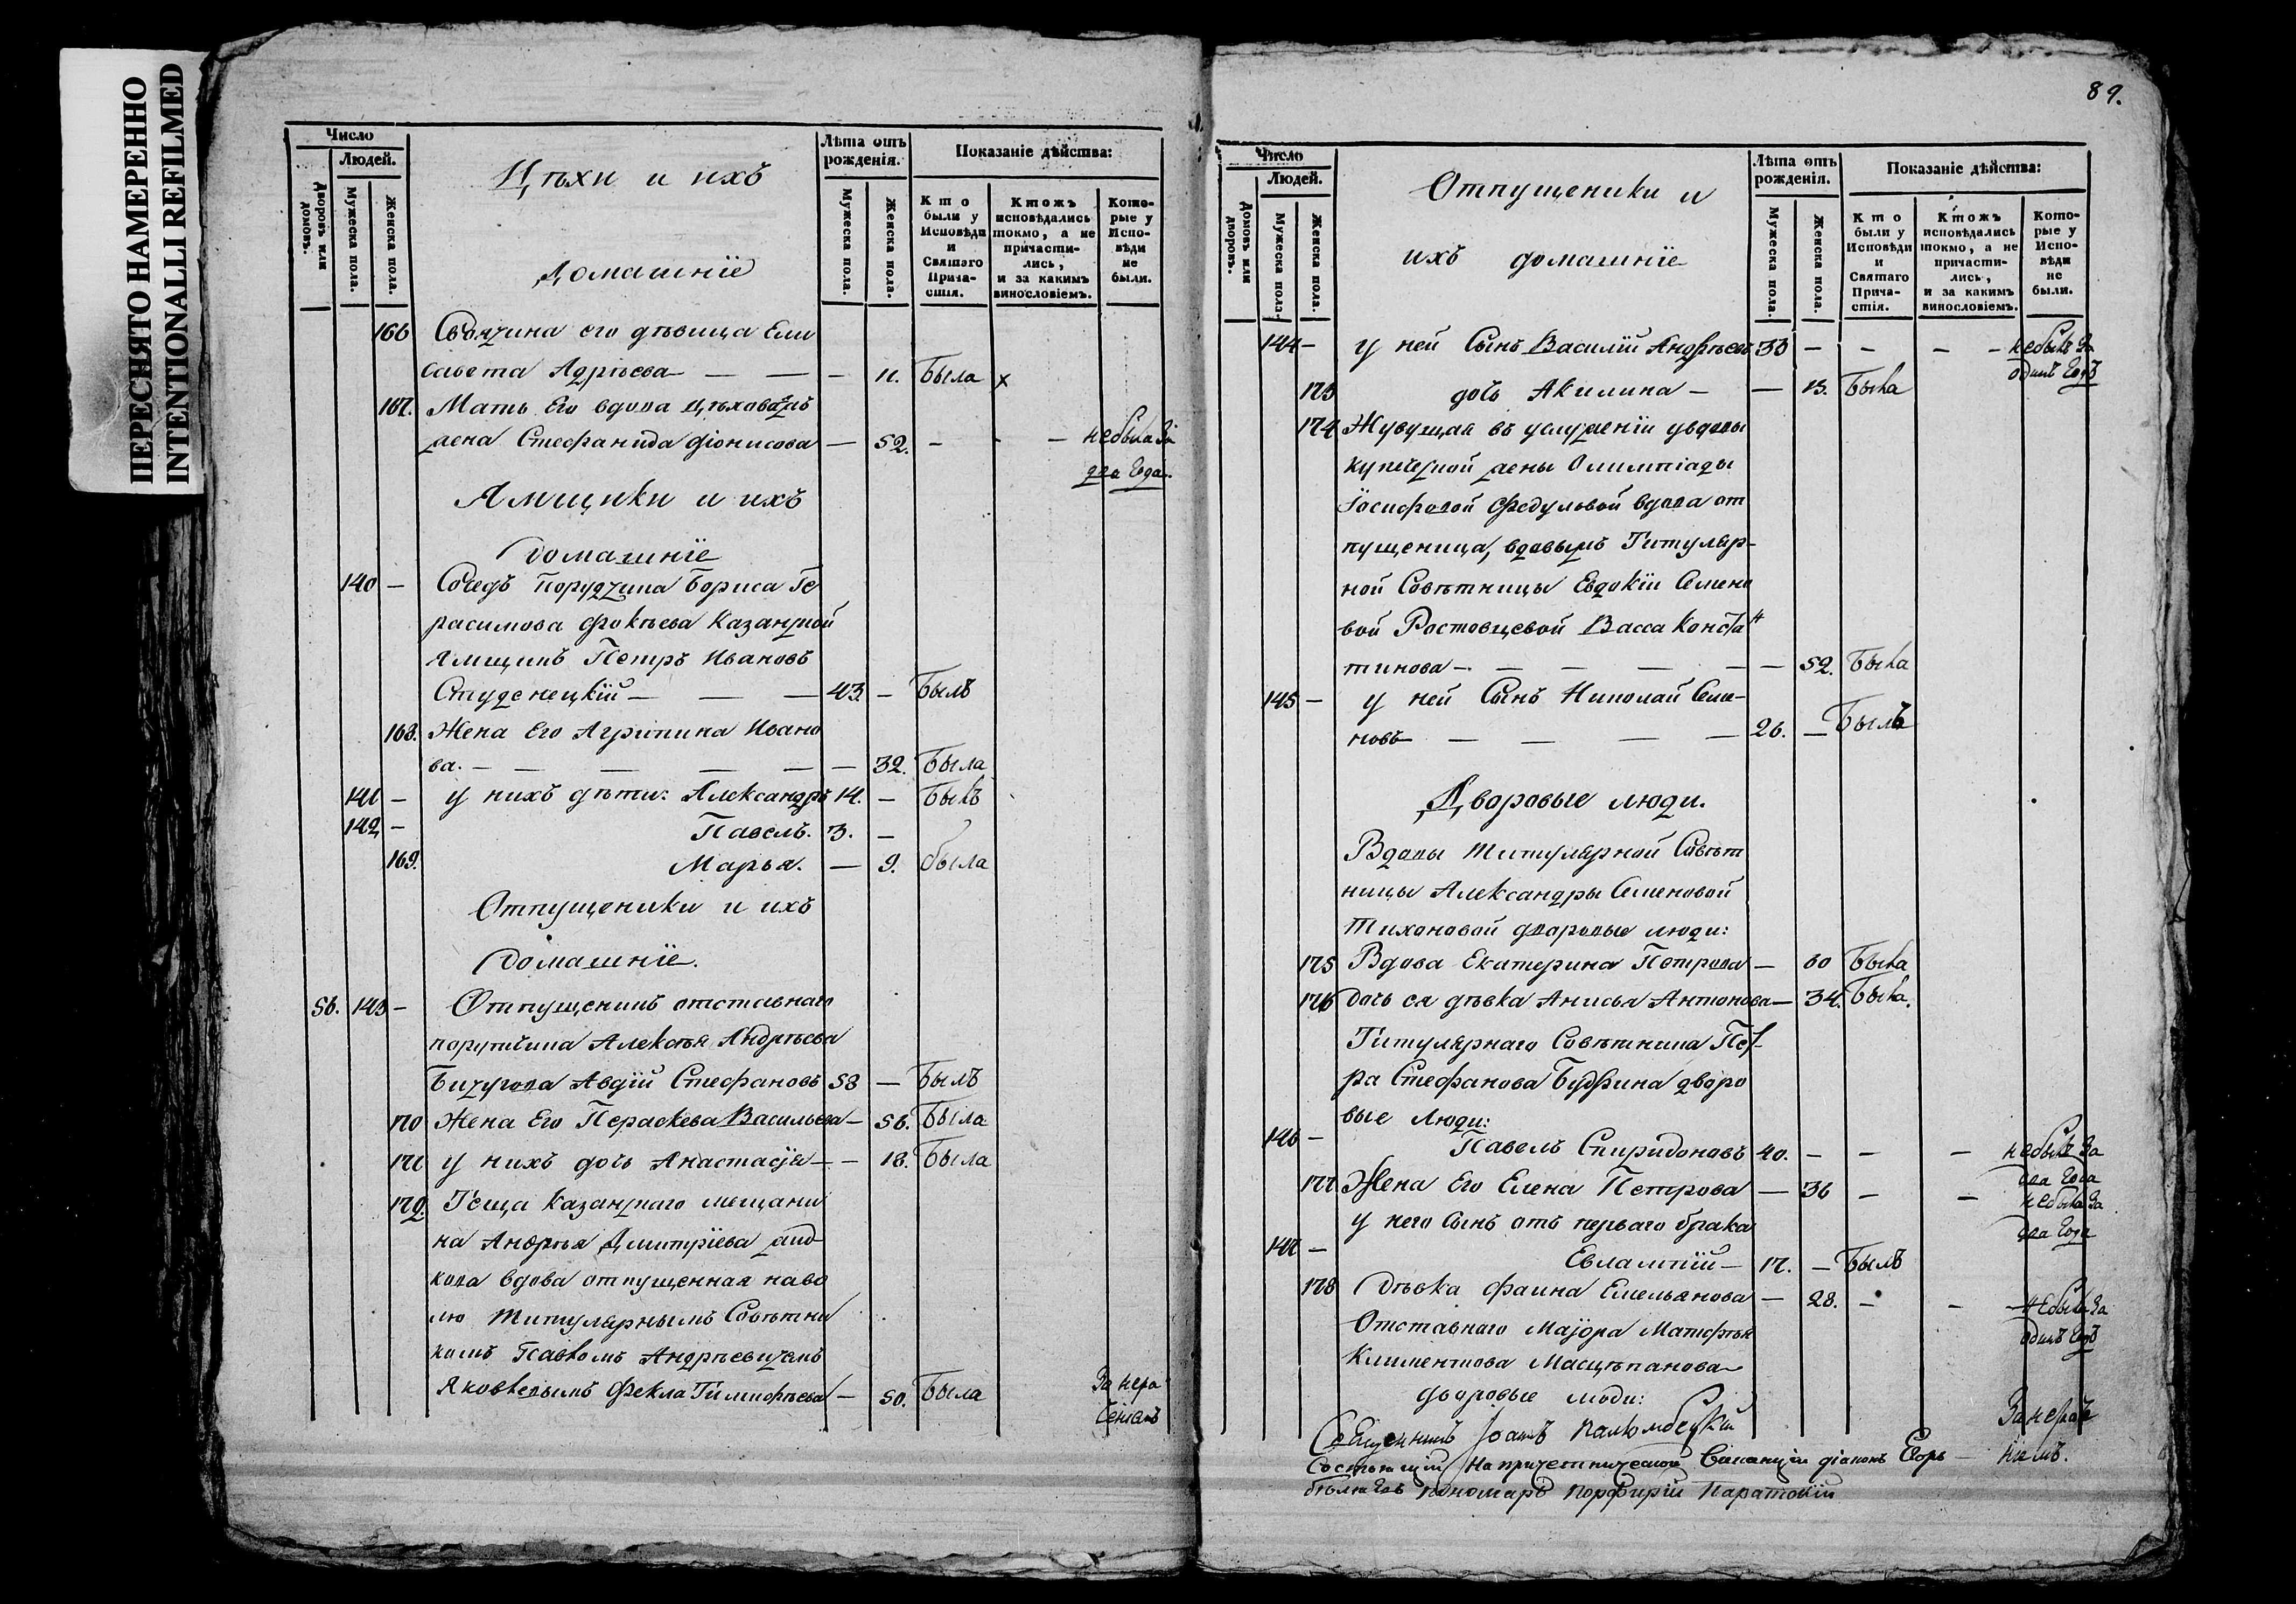 ПЕРЕСНЯТО НАМЕРЕННО
INTENTIONALLI REFILMED
Число
Людей.
Дворовъ или домовъ.
Мужеска пола.
Женска пола.
Цѣхи и ихъ
Домашніе
Лѣта отъ рожденія.
Мужеска пола.
Женска пола.
Показаніе дѣйства:
Кто были у Исповѣди и Святаго Причастія.
Ктожъ исповѣдались токмо, а не причастились, и за какимъ винословіемъ.
Которые у Исповѣди не были.
166 его дѣвица Ели
савета — — — 11. Была х
167. Мать Его вдова
Стефанида Діонисова — 52. - - — небыла За
два Года.
Ямщики и ихъ
Домашніе
140 — Бориса Ге
расимова Фокѣева
Ямщикъ Петръ Ивановъ
Студенецкій — — — 43. — Былъ
168. Жена Его Агрипина Ивано
ва. — — — — — — 32. Была
141 — у нихъ дѣти: Александръ 14. — Былъ
142 — Павелъ. 3. —
169. Марья. — 9. была
Отпущеники и ихъ
Домашніе.
56. 143 — Отпущеникъ отставнаго
Алексѣя Андрѣева
Авдій Стефановъ 58 — Былъ
170 Жена Его Параскева Васильева — 56. Была
171 у нихъ дочь Анастасія — — 18. Была
172. Теща мещани
на Андрея Димитріева
вдова отпущенная наво
лю Титулярнымъ Совѣтни
комъ Павломъ Андрѣевичемъ
Яковлевымъ Фекла Тимофѣева — 50. Была
89.
Число
Людей.
Домовъ или дворовъ.
Мужеска пола.
Женска пола.
Отпущеники и
ихъ домашніе
Лѣта отъ рожденія.
Мужеска пола.
Женска пола.
Показаніе дѣйства:
Кто были у Исповѣди и Святаго Причастія.
Ктожъ исповѣдались токмо, а не причастились, и за какимъ винословіемъ.
Которые у Исповѣди не были.
144 — у ней Сынъ Василій Андрѣевъ 33 — — — — небылъ За
одинъ Годъ
173 дочь Акилина — — 13. Была
174 въ услуженіи у вдовы
Олимпіады
Іосифовой Федуловой вдова от
пущеница, Титуляр-
ной Совѣтницы Евдокіи Семено
вой Ростовцевой Васса Констан
тинова — — — — — — 52. Была
145 — у ней Сынъ Николай Семе-
новъ — — — — 26. — Былъ
Дворовые люди.
Вдовы Титулярной Совѣт
ницы Александры Семеновой
Тихоновой дворовые люди:
175 Вдова Екатерина Петрова — 60 Была
176 дочь ея дѣвка Анисья Антонова — 34. Была.
Титулярнаго Совѣтника Пет
ра Стефанова дворо
вые Люди:
146 — Павелъ Спиридоновъ 40. — — — небылъ За
два Года
177 Жена Его Елена Петрова — 36 — — небыла За
два Года
у него Сынъ отъ перваго брака
147 — Евлампій — 17. — Былъ
178 Дѣвка Фаина Емельянова — 28. — — Небыла За
одинъ Годъ
Отставнаго Маіора Матфея
Климентова
дворовые люди:
Священникъ Іоаннъ
діаконъ Егоръ
пономарь Порфирій